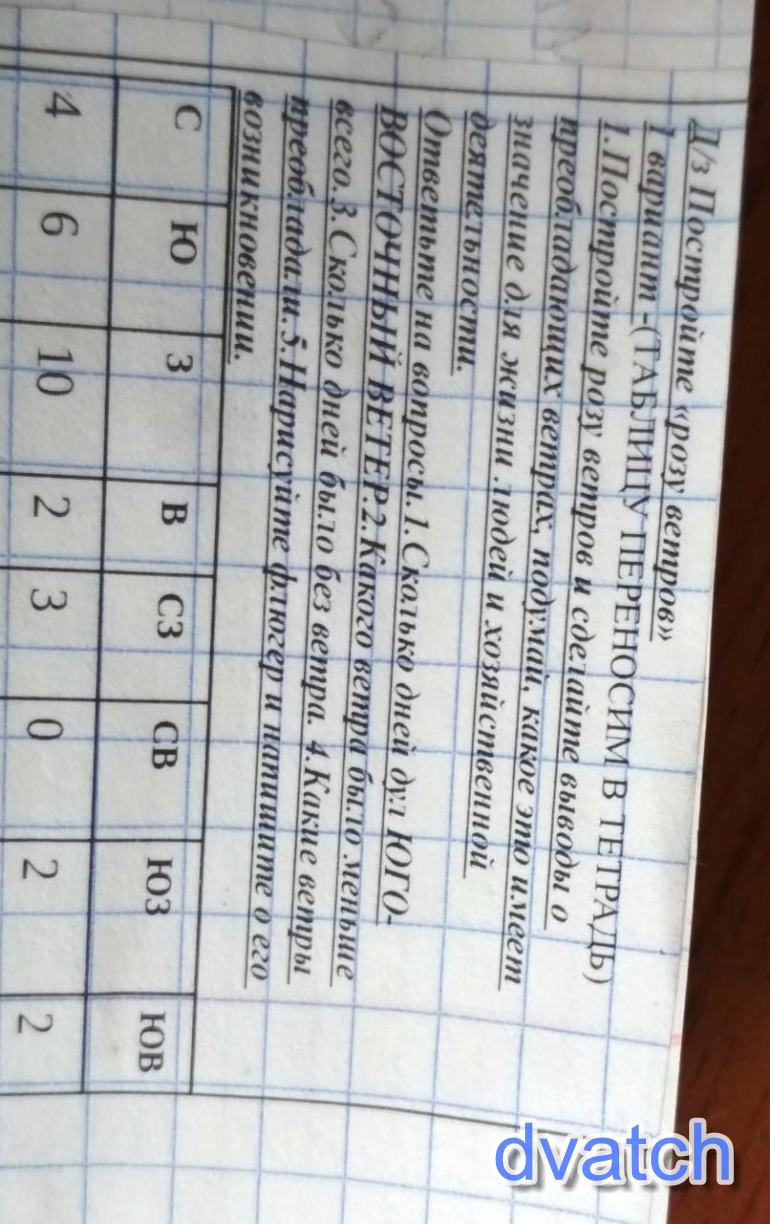 Д/з Постройте «розу ветров»
1 вариант -(ТАБЛИЦУ ПЕРЕНОСИМ В ТЕТРАДЬ)
1.Постройте розу ветров и сделайте выводы о
преобладающих ветрах, подумай, какое это имеет
значение для жизни людей и хозяйственной
деятельности.
Ответьте на вопросы.1.Сколько дней дул ЮГО-
ВОСТОЧНЫЙ ВЕТЕР.2.Какого ветра было меньше
всего.3.Сколько дней было без ветра. 4.Какие ветры
преобладали.5.Нарисуйте флюгер и напишите о его
возникновении.
С Ю З В СЗ СВ ЮЗ ЮВ
4 6 10 2 3 0 2 2
dvatch